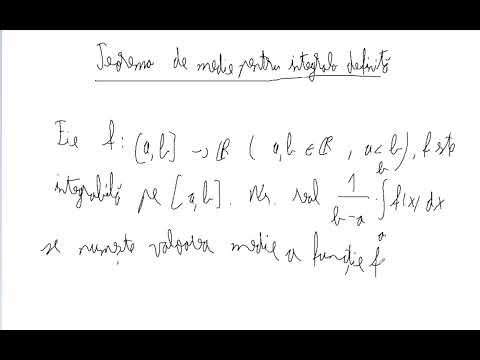 Teorema de medie pentru integrala definită
Fie f: [a,b] → ℝ ( a,b ∈ ℝ , a<b), f este
integrabilă pe [a,b]. Nr. real 1/(b-a) · ∫_a^b f(x) dx
se numește valoarea medie a funcție f